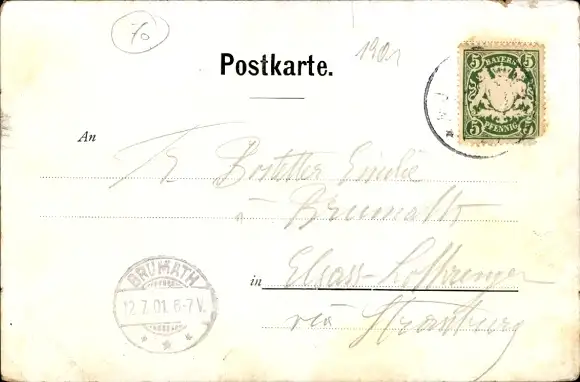 70
1901
Postkarte.
5 BAYERN 5
5 PFENNIG 5
An
Bostetter Emilie
à Brumath
BRUMATH
12.7.01. 6-7 V.
in Elsass-Lothringen
via Strassburg